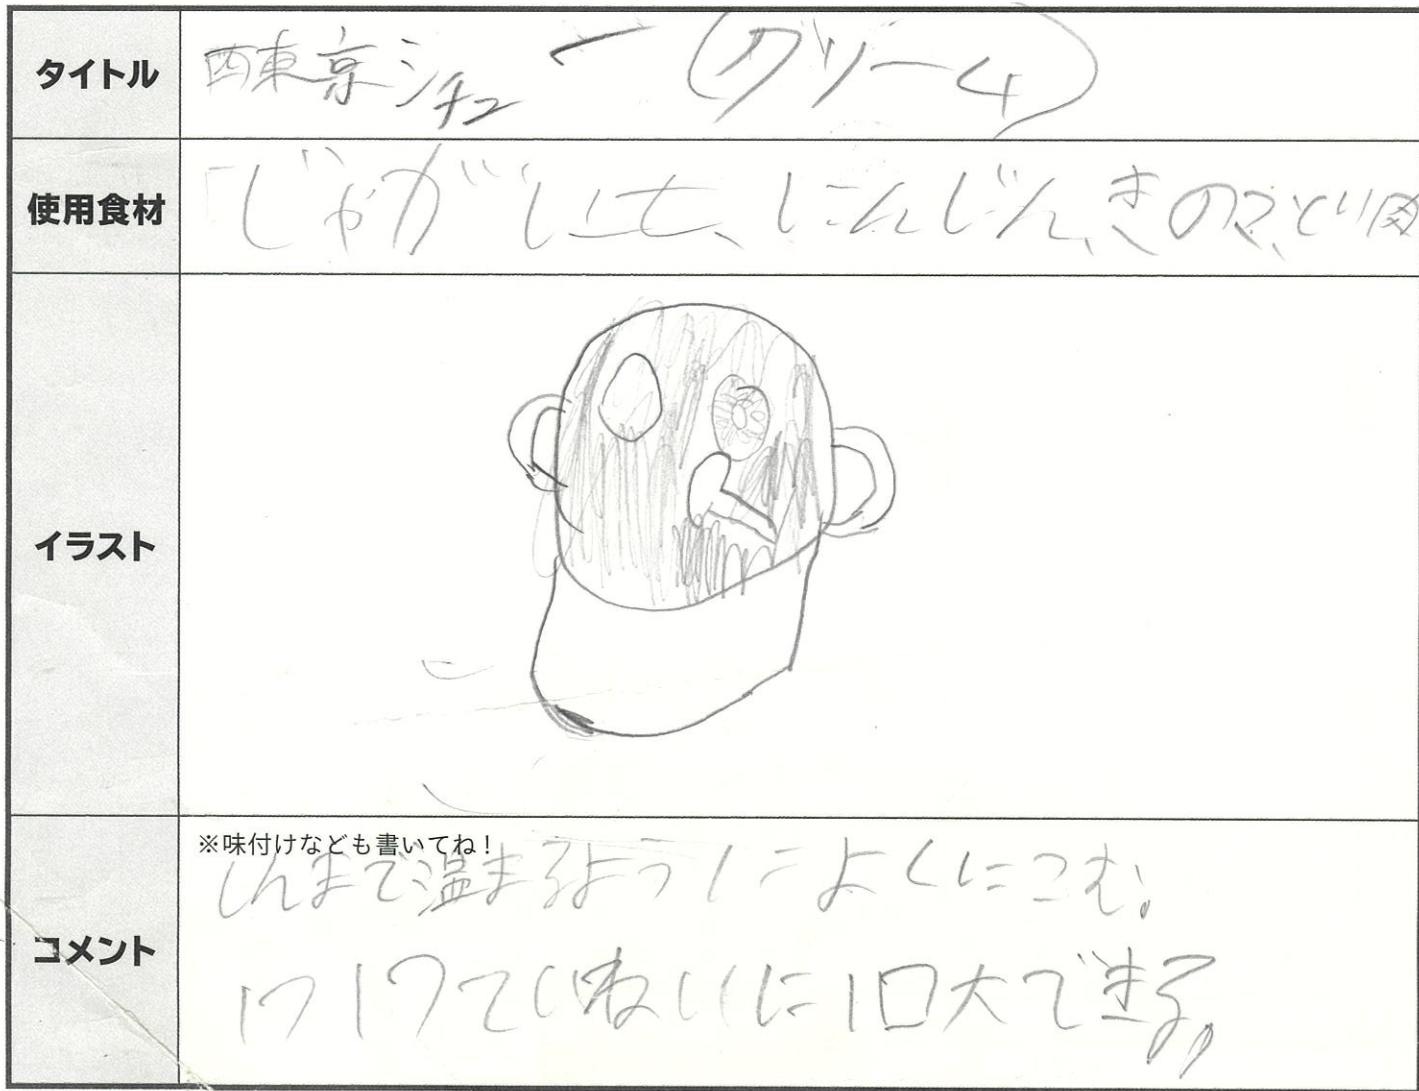 タイトル
西東京シチュー(クリーム)
使用食材
じゃがいも、にんじん、きのこ、とり肉
イラスト
※味付けなども書いてね！
コメント
しんまで温まるようによくにこむ。
1つ1つていねいに1口大できる。